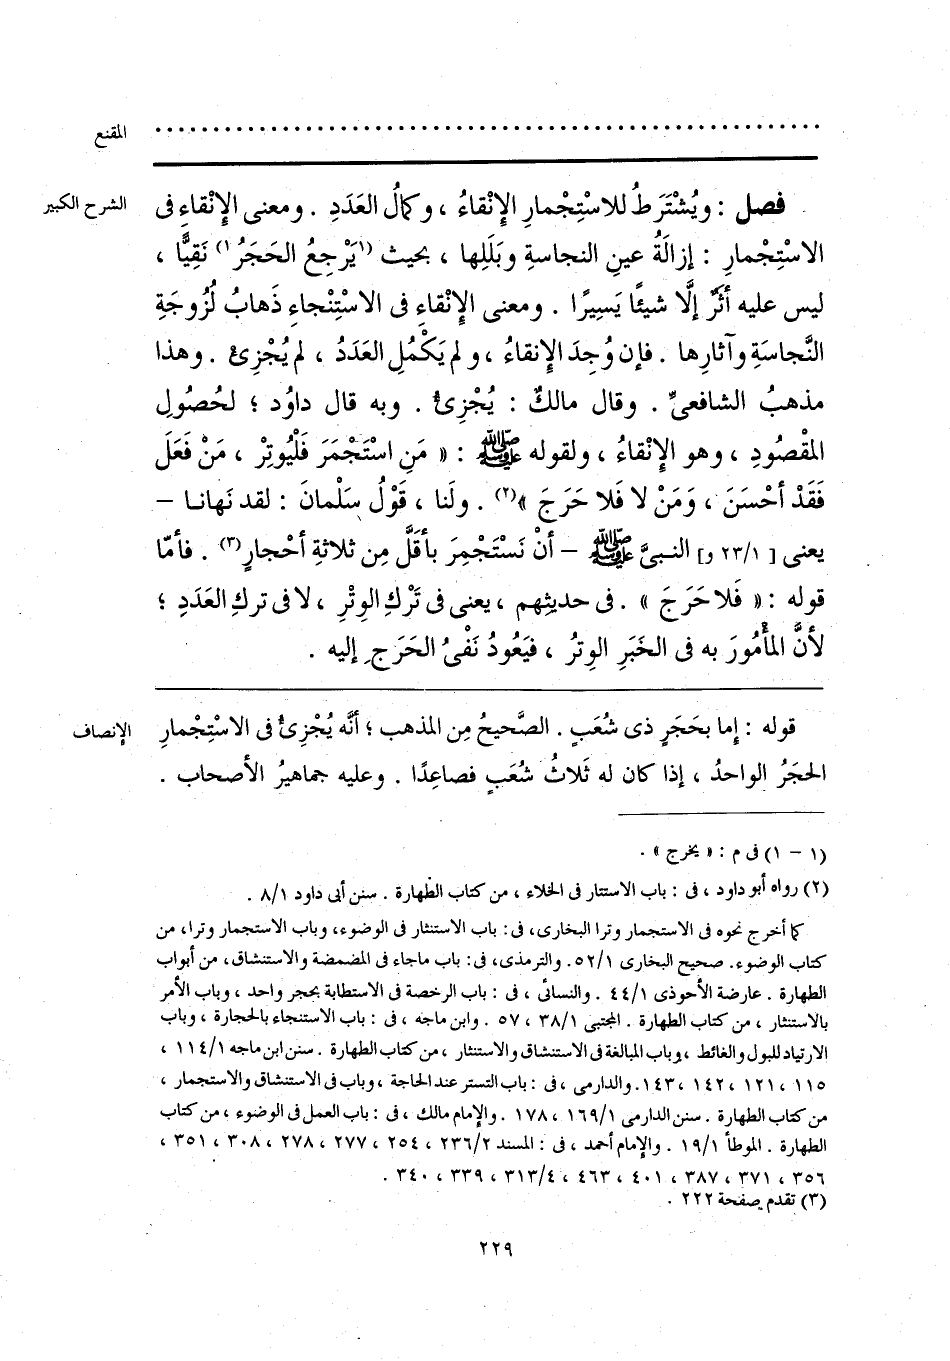 المقنع ............................................................
الشرح الكبير فصل : ويُشْتَرَطُ للاسْتِجْمارِ الإِنْقاءُ ، وكمالُ العَدَدِ . ومعنى الإِنْقاءِ فى
الاسْتِجْمارِ : إزالَةُ عينِ النجاسةِ وبَلَلِها ، بحيث (١يَرْجِعُ الحَجَرُ١) نَقِيًّا ،
ليس عليه أثَرٌ إلَّا شيئًا يَسِيرًا . ومعنى الإِنْقاءِ فى الاسْتِنْجاءِ ذَهابُ لُزُوجَةِ
النَّجاسَةِ وآثارِها . فإن وُجِدَ الإِنقاءُ ، ولم يَكْمُلِ العَدَدُ ، لم يُجْزِئْ . وهذا
مذهبُ الشافعىِّ . وقال مالكٌ : يُجْزِئُ . وبه قال داوُد ؛ لحُصُولِ
المقْصُودِ ، وهو الإِنْقاءُ ، ولقوله ﷺ : « مَنِ اسْتَجْمَرَ فَلْيُوتِرْ ، مَنْ فَعَلَ
فَقَدْ أحْسَنَ ، وَمَنْ لا فَلا حَرَجَ »(٢) . ولَنا ، قَوْلُ سَلْمانَ : لقد نَهانا –
يعنى [ ٢٣/١ و] النبىَّ ﷺ – أنْ نَسْتَجْمِرَ بأقَلَّ مِن ثلاثةِ أحْجارٍ(٣) . فأمّا
قوله : « فَلا حَرَجَ » . فى حديثِهم ، يعنى فى تَرْكِ الوِتْرِ ، لا فى تركِ العَدَدِ ؛
لأنَّ المأْمُورَ به فى الخَبَرِ الوِترُ ، فيَعُودُ نَفْىُ الحَرَجِ إليه .
الإنصاف قوله : إما بحَجَرٍ ذى شُعَبٍ . الصَّحيحُ مِن المذهب ؛ أنَّه يُجْزِئُ فى الاسْتِجْمارِ
الحجَرُ الواحدُ ، إذا كان له ثَلاثُ شُعَبٍ فصاعِدًا . وعليه جماهيرُ الأصحاب .
(١ – ١) فى م : « يخرج » .
(٢) رواه أبو داود ، فى : باب الاستتار فى الخلاء ، من كتاب الطهارة . سنن أبى داود ٨/١ .
كما أخرج نحوه فى الاستجمار وترا البخارى، فى: باب الاستنثار فى الوضوء، وباب الاستجمار وترا، من
كتاب الوضوء. صحيح البخارى ٥٢/١. والترمذى، فى: باب ماجاء فى المضمضة والاستنشاق، من أبواب
الطهارة . عارضة الأحوذى ٤٤/١ . والنسائى ، فى : باب الرخصة فى الاستطابة بحجر واحد ، وباب الأمر
بالاستنثار ، من كتاب الطهارة . المجتبى ٣٨/١ ، ٥٧ . وابن ماجه ، فى : باب الاستنجاء بالحجارة ، وباب
الارتياد للبول والغائط ، وباب المبالغة فى الاستنشاق والاستنثار ، من كتاب الطهارة . سنن ابن ماجه ١١٤/١ ،
١١٥ ، ١٢١ ، ١٤٢ ، ١٤٣. والدارمى ، فى : باب التستر عند الحاجة ، وباب فى الاستنشاق والاستجمار ،
من كتاب الطهارة . سنن الدارمى ١٦٩/١ ، ١٧٨ . والإمام مالك ، فى : باب العمل فى الوضوء ، من كتاب
الطهارة . الموطأ ١٩/١ . والإمام أحمد ، فى : المسند ٢٣٦/٢ ، ٢٥٤ ، ٢٧٧ ، ٢٧٨ ، ٣٠٨ ، ٣٥١ ،
٣٥٦ ، ٣٧١ ، ٣٨٧ ، ٤٠١ ، ٤٦٣ ، ٣١٣/٤ ، ٣٣٩ ، ٣٤٠ .
(٣) تقدم صفحة ٢٢٢ .
٢٢٩